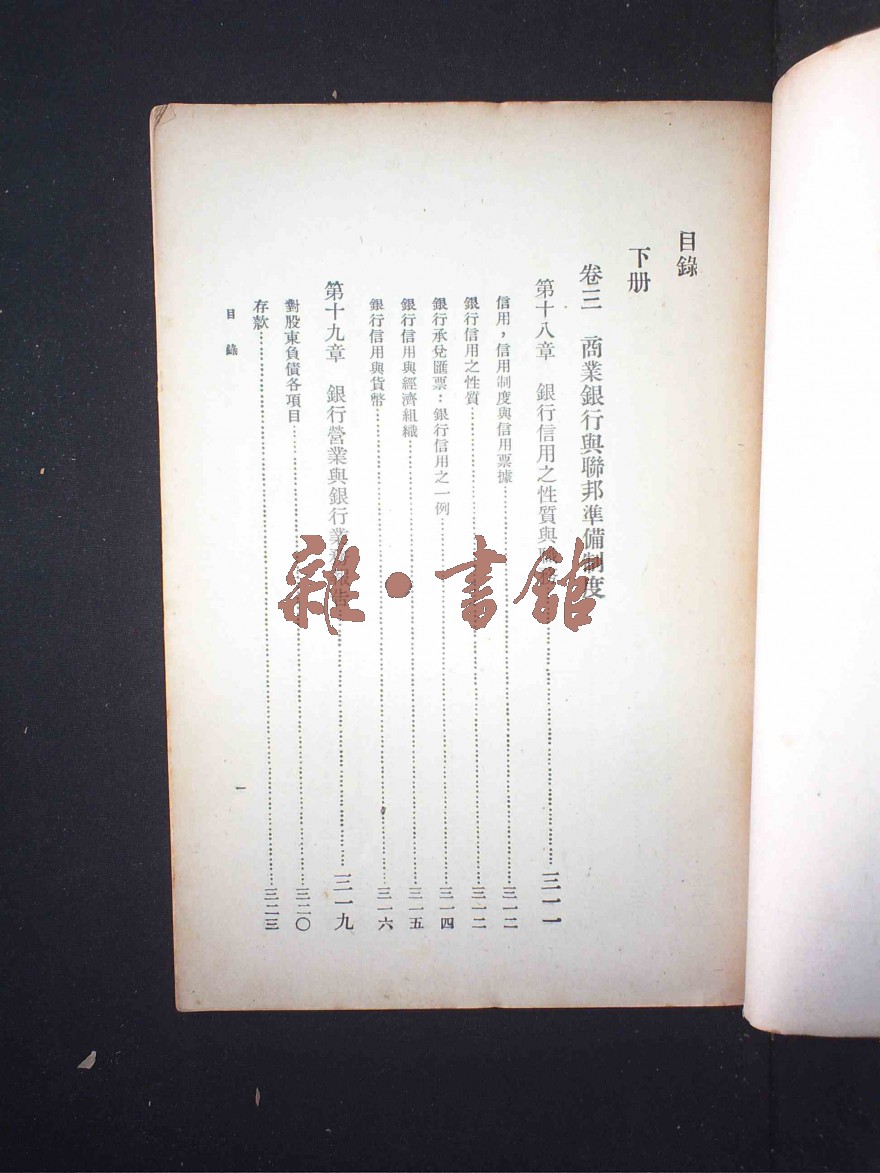 目錄
下册
卷三　商業銀行與聯邦準備制度
第十八章　銀行信用之性質與職……三一一
信用，信用制度與信用票據……三一二
銀行信用之性質……三一二
銀行承兌匯票：銀行信用之一例……三一四
銀行信用與經濟組織……三一五
銀行信用與貨幣……三一六
第十九章　銀行營業與銀行業務報告……三一九
對股東負債各項目……三二〇
存款……三二三
目錄
一
雜·書館